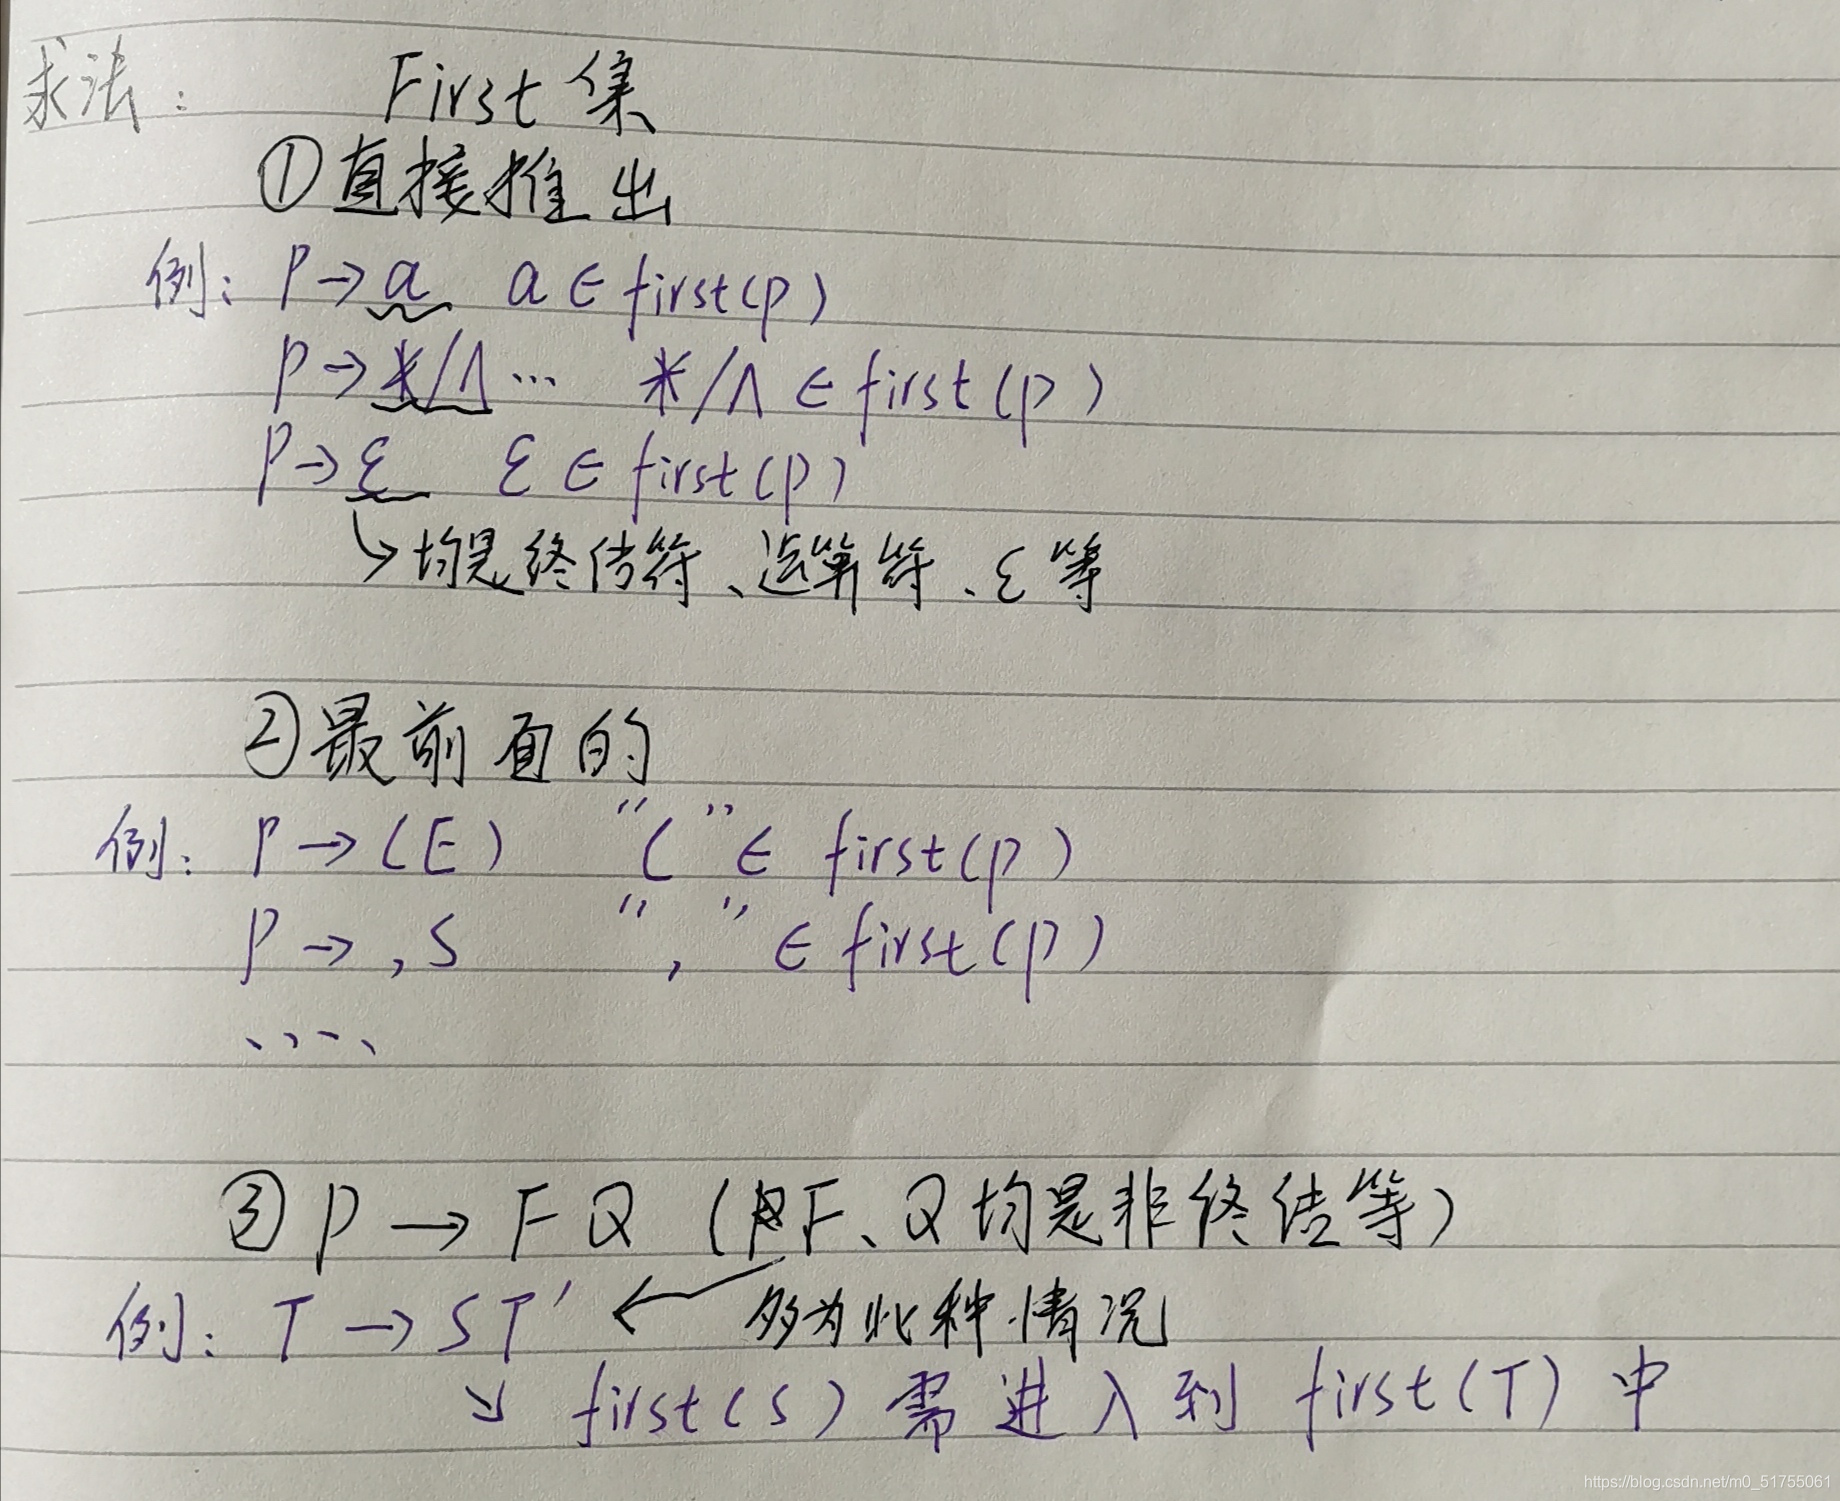 求法： First集
①直接推出
例: P→a a∈first(p)
P→*/Λ… */Λ∈first(p)
P→ε ε∈first(p)
↳均是终结符、运算符、ε等
②最前面的
例: P→(E) "("∈ first(p)
P→,S "," ∈ first(p)
.....
③P→FQ (F、Q均是非终结等)
例: T→ST' ← 多为此种情况
↘ first(S)需进入到 first(T)中
https://blog.csdn.net/m0_51755061